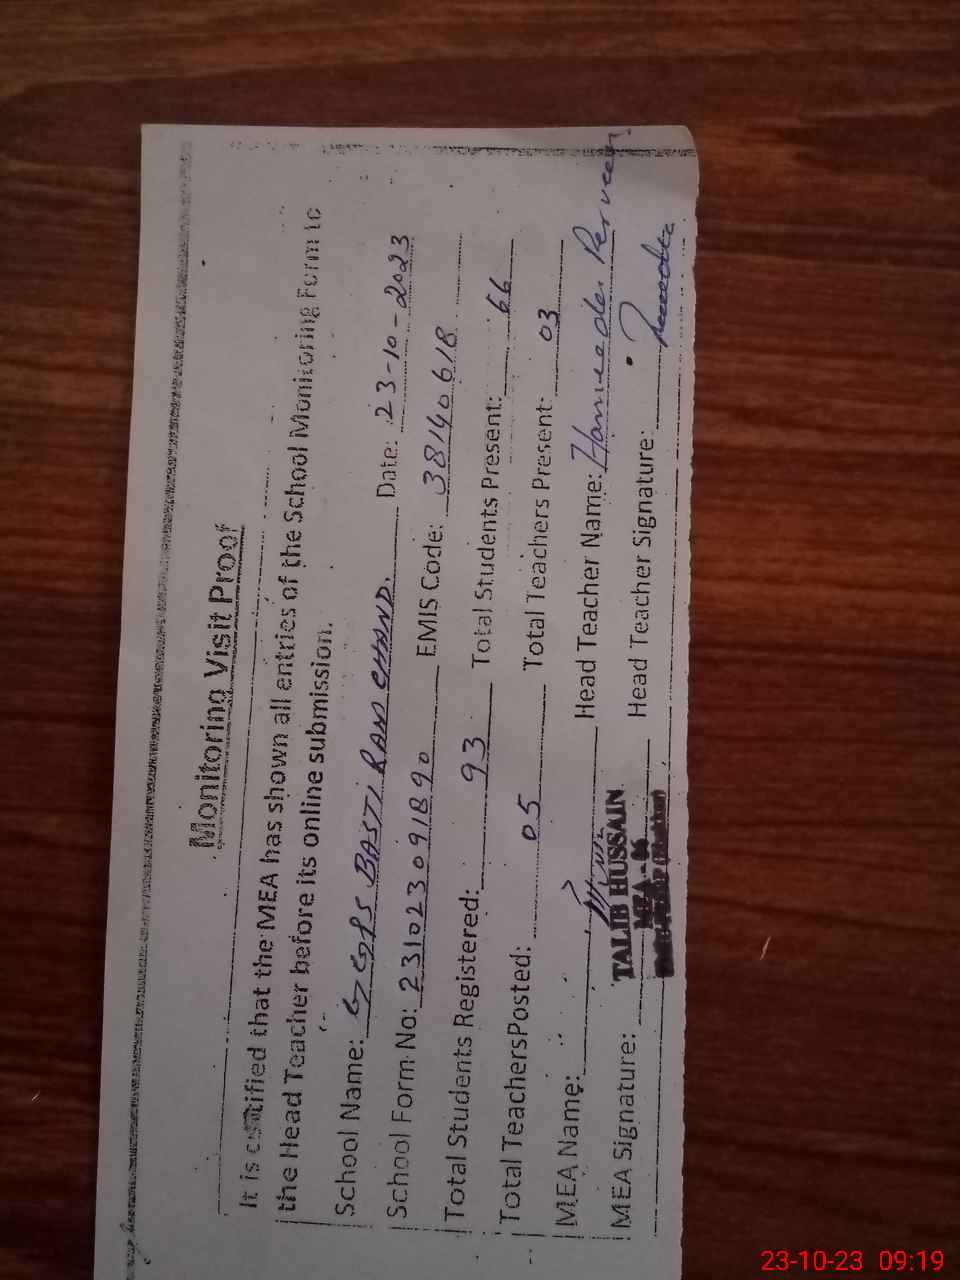 Monitoring Visit Proof
It is certified that the MEA has shown all entries of the School Monitoring Form to
the Head Teacher before its online submission.
School Name: GGPS BASTI RAM CHAND. Date: 23-10-2023
School Form No: 231023091890 EMIS Code: 38140618
Total Students Registered: 93 Total Students Present: 66
Total Teachers Posted: 05 Total Teachers Present: 03
MEA Name: Head Teacher Name: Hameeda Perveen
TALIB HUSSAIN
MEA Signature: MEA-06 Head Teacher Signature:
23-10-23 09:19